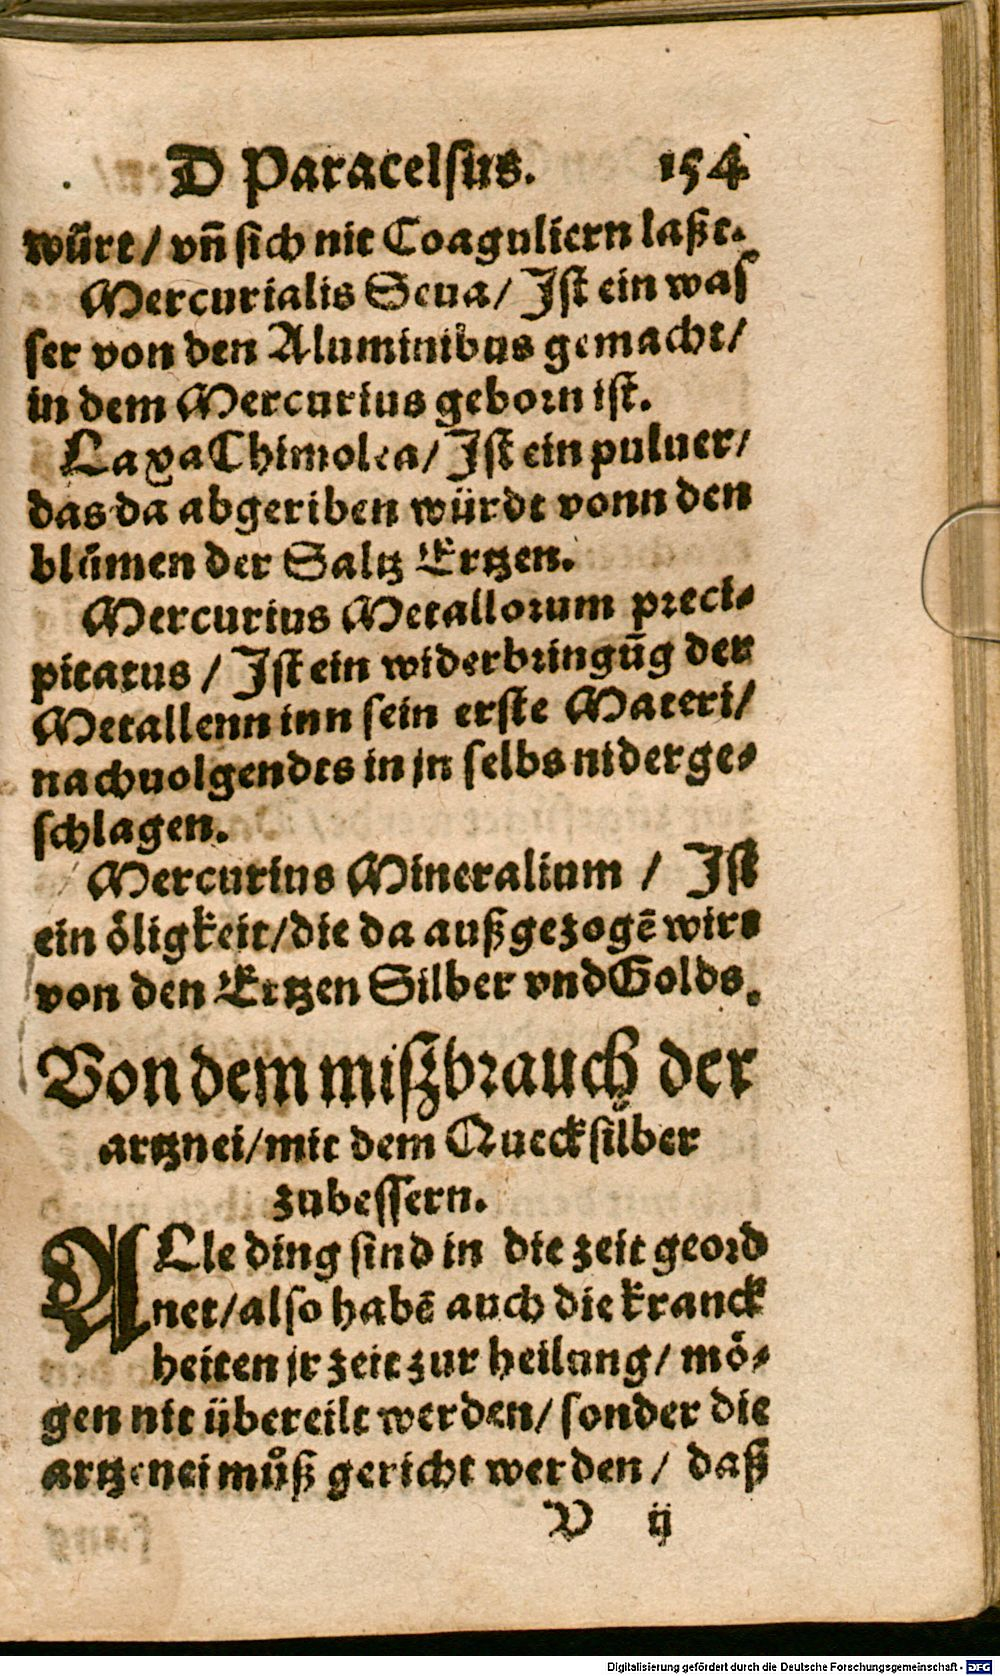 D Paracelsus. 154
würt / vñ sich nit Coaguliern laßt.
Mercurialis Seua / Ist ein was
ser von den Aluminibus gemacht /
in dem Mercurius geborn ist.
Laxa Chimolea / Ist ein puluer /
das da abgeriben würdt vonn den
blůmen der Saltz Ertzen.
Mercurius Metallorum preci-
pitatus / Ist ein widerbringũg der
Metallenn inn sein erste Materi /
nachuolgendts in jn selbs niderge-
schlagen.
Mercurius Mineralium / Ist
ein öligkeit / die da außgezogẽ wirt
von den Ertzen Silber vnd Golds.
Von dem miszbrauch der
artznei / mit dem Quecksilber
zubessern.
ALle ding sind in die zeit geord
net / also habẽ auch die kranck
heiten jr zeit zur heilung / mö-
gen nit übereilt werden / sonder die
artzenei můß gericht werden / daß
V ij
Digitalisierung gefördert durch die Deutsche Forschungsgemeinschaft - DFG